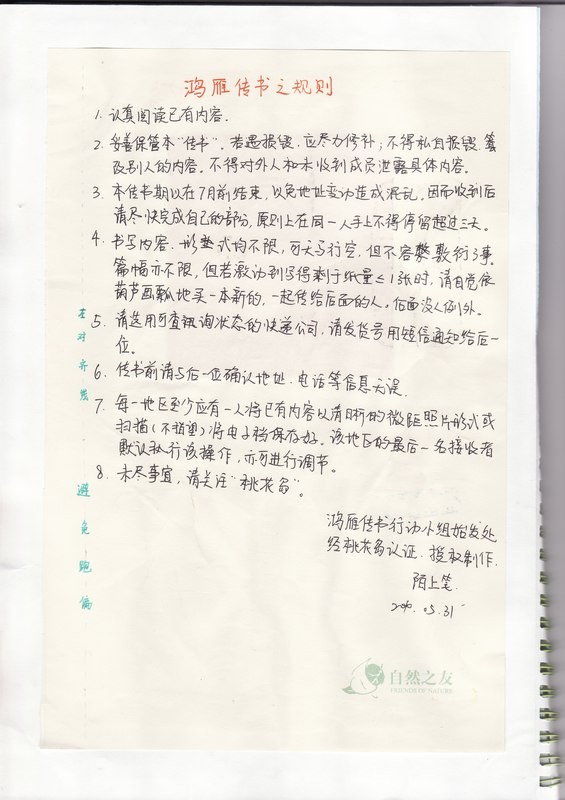 鸿雁传书之规则
1. 认真阅读已有内容.
2. 妥善保管本“传书”. 若遇损毁, 应尽力修补; 不得私自损毁、篡
改别人的内容. 不得对外人和未收到成员泄露具体内容.
3. 本传书期以在7月前结束, 以免地址变动造成混乱. 因而收到后
请尽快完成自己的部分, 原则上在同一人手上不得停留超过三天.
4. 书写内容、形式均不限, 可天马行空, 但不容敷衍了事.
篇幅亦不限, 但若激动到写得剩于纸量≤1张时, 请自觉依
葫芦画瓢地买一本新的, 一起传给后面的人, 后面没人例外.
5. 请选用可查讯询状态的快递公司, 请发货号用短信通知给后一
位.
6. 传书前请与后一位确认地址、电话等信息无误.
7. 每一地区至少应有一人将已有内容以清晰的微距照片形式或
扫描(不指望)将电子档保存好. 该地区的最后一名接收者
默认执行该操作, 亦可进行调节.
8. 未尽事宜, 请关注“桃花岛”.
鸿雁传书行动小组始发处
经桃花岛认证、授权制作.
陌上笔
05.31
对齐
避免跑偏
自然之友
FRIENDS OF NATURE